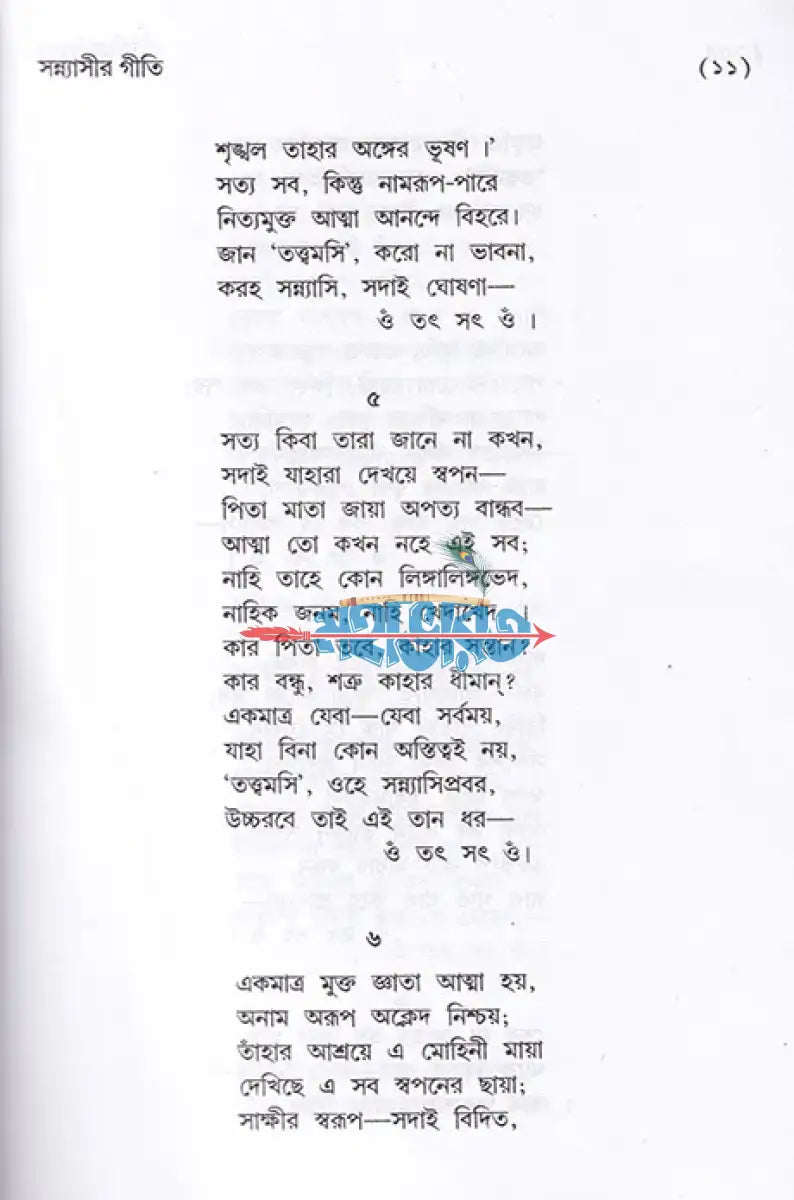 সন্ন্যাসীর গীতি (১১)
শৃঙ্খল তাহার অঙ্গের ভূষণ।’
সত্য সব, কিন্তু নামরূপ-পারে
নিত্যমুক্ত আত্মা আনন্দে বিহরে।
জান ‘তত্ত্বমসি’, করো না ভাবনা,
করহ সন্ন্যাসি, সদাই ঘোষণা—
ওঁ তৎ সৎ ওঁ।
৫
সত্য কিবা তারা জানে না কখন,
সদাই যাহারা দেখয়ে স্বপন—
পিতা মাতা জায়া অপত্য বান্ধব—
আত্মা তো কখন নহে এই সব;
নাহি তাহে কোন লিঙ্গালিঙ্গভেদ,
নাহিক জনম, নাহি খেদাখেদ।
মহাভারত
কার পিতা তবে, কাহার সন্তান?
কার বন্ধু, শত্রু কাহার ধীমান্?
একমাত্র যেবা—যেবা সর্বময়,
যাহা বিনা কোন অস্তিত্বই নয়,
‘তত্ত্বমসি’, ওহে সন্ন্যাসিপ্রবর,
উচ্চরবে তাই এই তান ধর—
ওঁ তৎ সৎ ওঁ।
৬
একমাত্র মুক্ত জ্ঞাতা আত্মা হয়,
অনাম অরূপ অক্লেদ নিশ্চয়;
তাঁহার আশ্রয়ে এ মোহিনী মায়া
দেখিছে এ সব স্বপনের ছায়া;
সাক্ষীর স্বরূপ—সদাই বিদিত,